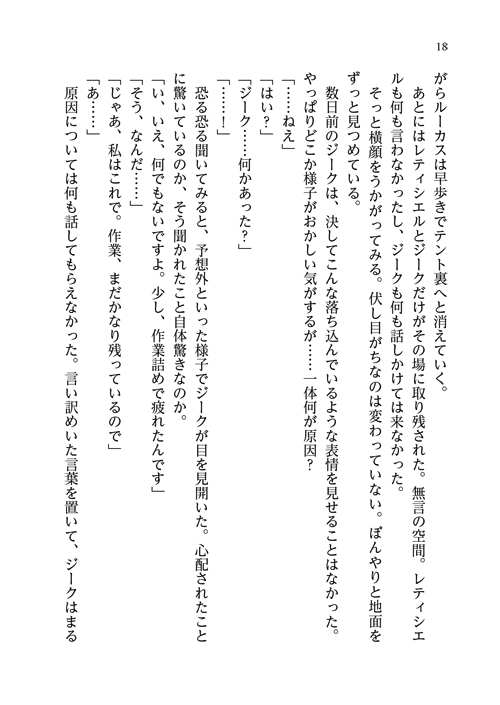 18
がらルーカスは早歩きでテント裏へと消えていく。
　あとにはレティシエルとジークだけがその場に取り残された。無言の空間。レティシエ
ルも何も言わなかったし、ジークも何も話しかけては来なかった。
　そっと横顔をうかがってみる。伏し目がちなのは変わっていない。ぼんやりと地面を
ずっと見つめている。
　数日前のジークは、決してこんな落ち込んでいるような表情を見せることはなかった。
やっぱりどこか様子がおかしい気がするが……一体何が原因？
「……ねえ」
「はい？」
「ジーク……何かあった？」
「……！」
　恐る恐る聞いてみると、予想外といった様子でジークが目を見開いた。心配されたこと
に驚いているのか、そう聞かれたこと自体驚きなのか。
「い、いえ、何でもないですよ。少し、作業詰めで疲れたんです」
「そう、なんだ……」
「じゃあ、私はこれで。作業、まだかなり残っているので」
「あ……」
　原因については何も話してもらえなかった。言い訳めいた言葉を置いて、ジークはまる